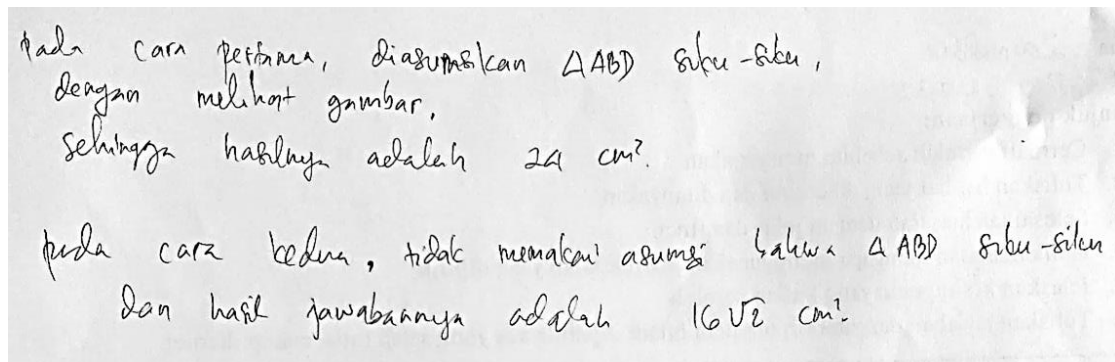 pada cara pertama, diasumsikan △ABD siku-siku,
dengan melihat gambar,
sehingga hasilnya adalah 24 cm².
pada cara kedua, tidak memakai asumsi bahwa △ABD siku-siku
dan hasil jawabannya adalah 16√2 cm².